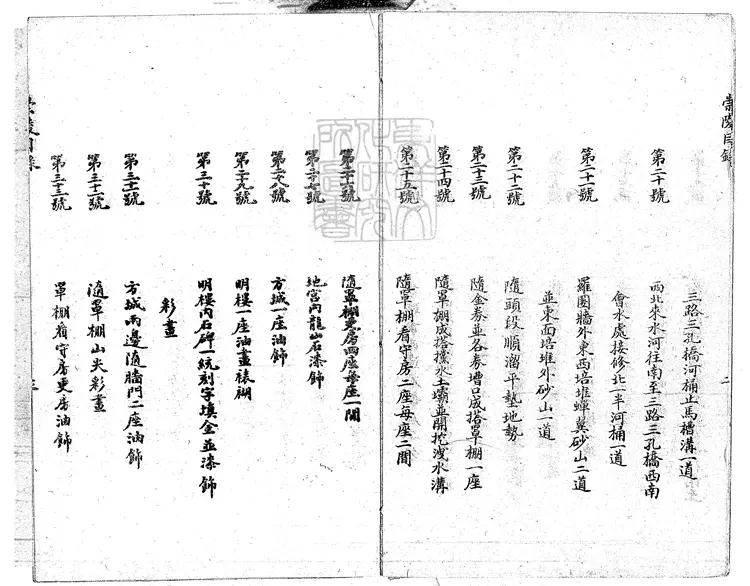 崇陵目錄
二
三路三孔橋河桶止馬槽溝一道
第二十號
西北來水河往南至三路三孔橋西南
會水處接修北一半河桶一道
第二十一號
羅圈牆外東西培堆蟬翼砂山二道
並東面培堆外砂山一道
第二十二號
隨頭段順溜平墊地勢
第二十三號
隨金券並各券墻口成搭罩棚一座
第二十四號
隨罩棚成搭擋水土壩並開挖洩水溝
第二十五號
隨罩棚看守房二座每座二間
第二十六號
隨罩棚更房四座每座一間
第二十七號
地宮內龍山石漆飾
第二十八號
方城一座油飾
第二十九號
明樓一座油畫裱糊
第三十號
明樓內石碑一統刻字填金並漆飾
彩畫
第三十一號
方城兩邊隨牆門二座油飾
第三十二號
隨罩棚山尖彩畫
第三十三號
罩棚看守房更房油飾
崇陵目錄
三